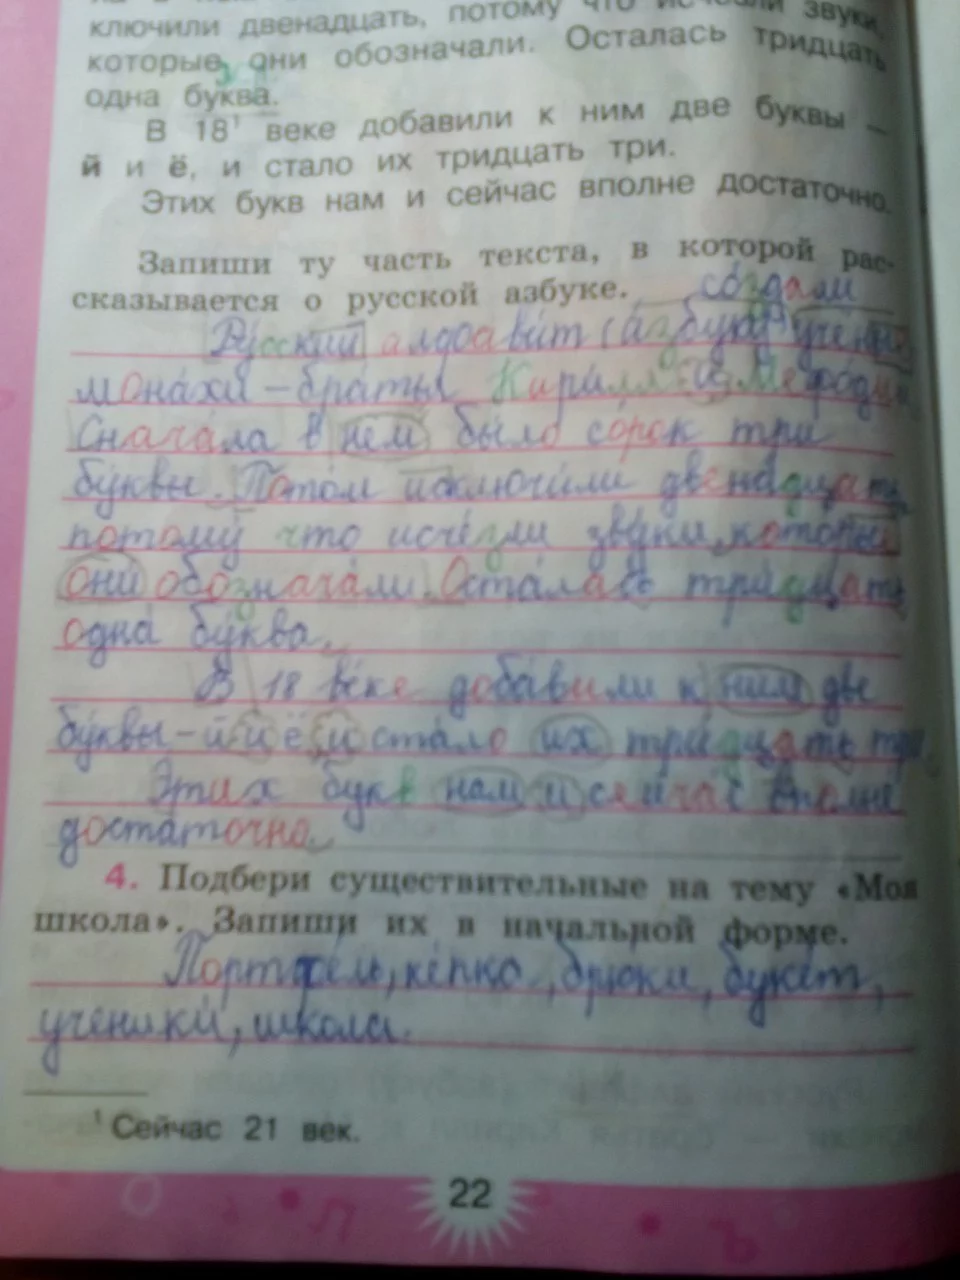 ключили двенадцать, потому что исчезли звуки,
которые они обозначали. Осталась тридцать
одна буква.
В 18¹ веке добавили к ним две буквы –
й и ё, и стало их тридцать три.
Этих букв нам и сейчас вполне достаточно.
Запиши ту часть текста, в которой рас-
сказывается о русской азбуке.
создали
Русский алфавит (азбуку) учёные
монахи – братья Кирилл и Мефодий
Сначала в нем было сорок три
буквы. Потом исключили двенадцать
потому что исчезли звуки, которые
они обозначали. Осталась тридцать
одна буква.
В 18 веке добавили к ним две
буквы – й и ё и стало их тридцать три.
Этих букв нам и сейчас вполне
достаточно.
4. Подбери существительные на тему «Моя
школа». Запиши их в начальной форме.
Портфель, кепка, брюки, букет,
ученики, школа.
¹ Сейчас 21 век.
22
Л
Ъ